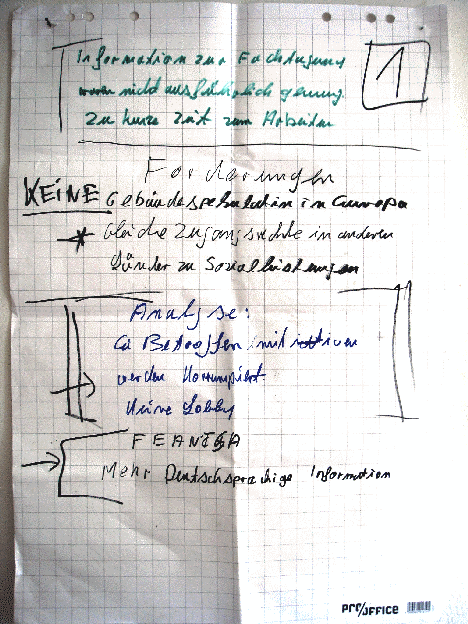 Information zur Fachtagung
waren nicht ausführlich genug
1
Zu kurze Zeit zum Arbeiten
Forderungen
KEINE Gebäudespekulation in Europa
Gleiche Zugangsrechte in anderen
Länder zu Sozialleistungen
Analyse:
Betroffen
werden korrumpiert
Keine Lobby
FEANTSA
Mehr Deutschsprachige Information
PRO/OFFICE